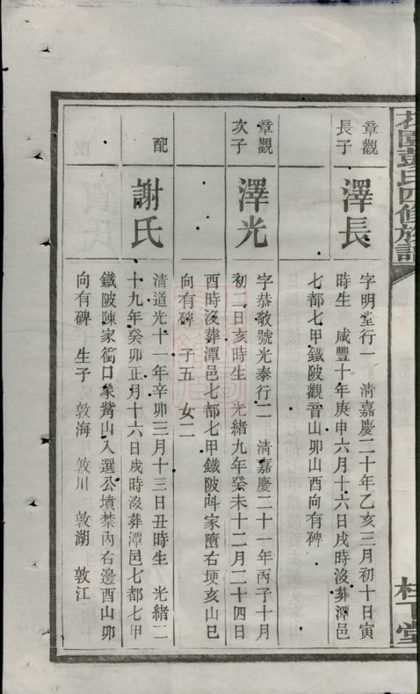 章觀
長子
澤長
字明堂行一　清嘉慶二十年乙亥三月初十日寅
時生　咸豐十年庚申六月十六日戌時沒葬潭邑
七都七甲鐵陂觀音山卯山酉向有碑
章觀
次子
澤光
字恭敬號光泰行二　清嘉慶二十一年丙子十月
初二日亥時生　光緒九年癸未十二月二十四日
酉時沒葬潭邑七都七甲鐵陂家右埂亥山巳
向有碑　子五　女二
配
謝氏
清道光十一年辛卯三月十三日丑時生　光緒二
十九年癸卯正月十六日戌時沒葬潭邑七都七甲
鐵陂陳家衝口象山入選公墳禁內右邊酉山卯
向有碑　生子　敦海　敦川　敦湖　敦江